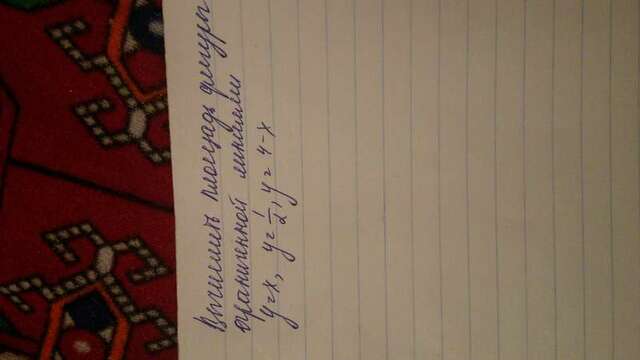 Вычислить площадь фигуры
ограниченной линиями
y=x, y=1/2, y=4-x